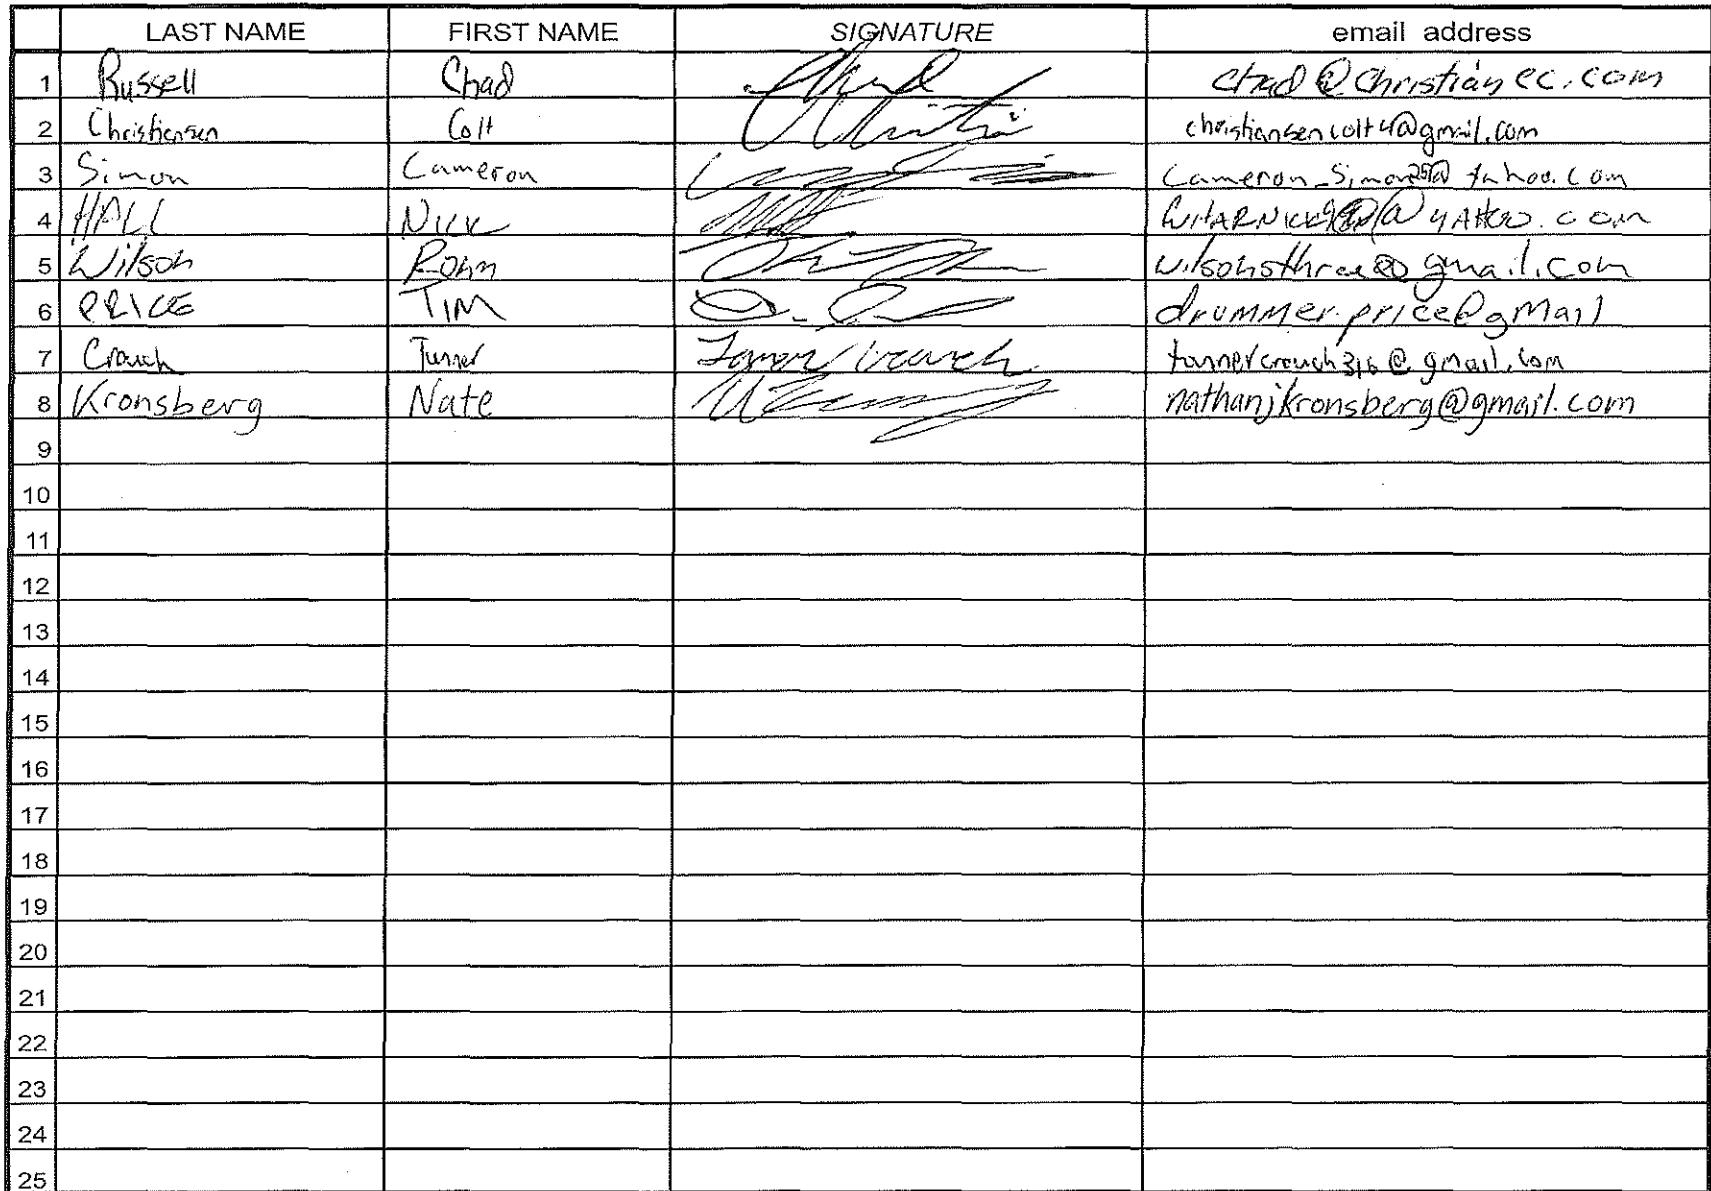 LAST NAME FIRST NAME SIGNATURE email address
1 Russell Chad chad@christianecc.com
2 Christiansen Colt christiansencolt4@gmail.com
3 Simon Cameron Cameron_Simon25@yahoo.com
4 HALL NICK @YAHOO.COM
5 Wilson Rohn wilsonsthree@gmail.com
6 PRICE TIM drummer.price@gMail
7 Crouch Tanner Tanner Crouch tannercrouch316@gmail.com
8 Kronsberg Nate nathanjkronsberg@gmail.com
9
10
11
12
13
14
15
16
17
18
19
20
21
22
23
24
25